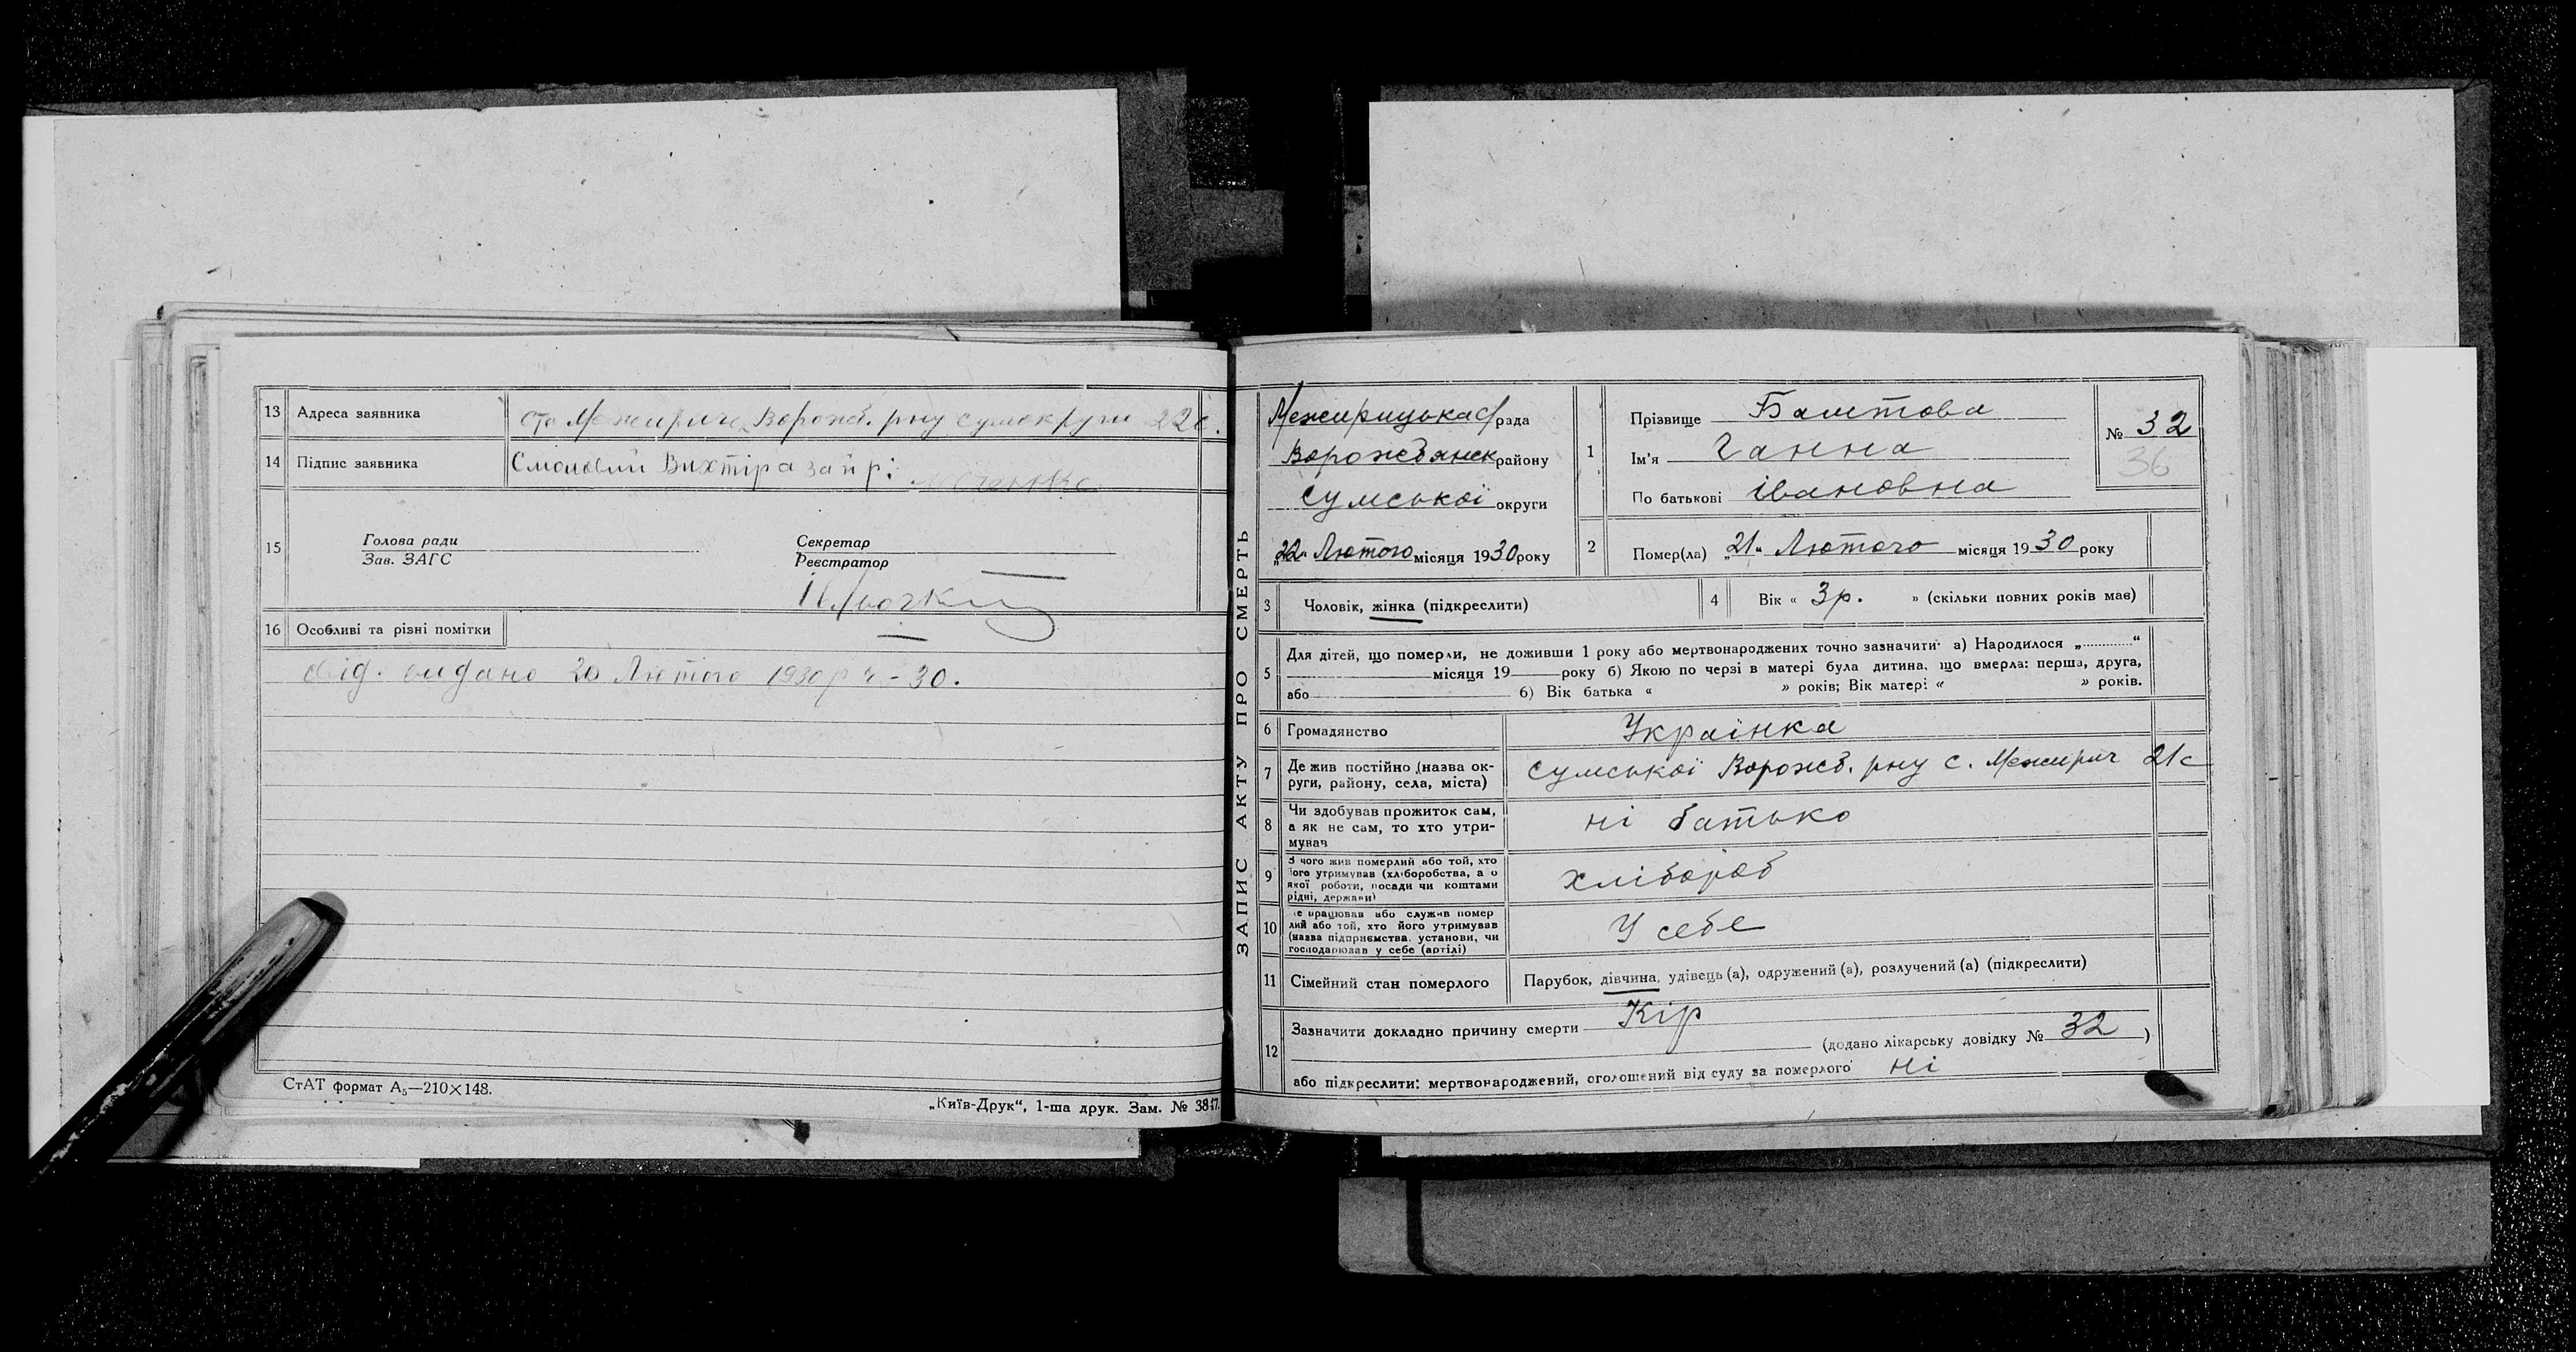 13 Адреса заявника сто Межирича Ворожб. рну Сумокруги 22 с.
14 Підпис заявника Вихтір а за нрі
15 Голова ради Секретар
Зав. ЗАГС Реєстратор
16 Особливі та різні помітки
від. видано 20 Лютого 1930 р ч - 30.
СтАТ формат А₅—210×148.
„Київ-Друк“, 1-ша друк. Зам. № 3817.
ЗАПИС АКТУ ПРО СМЕРТЬ
Межирицька с/рада
Ворожбянск району
Сумської округи
„22“ Лютого місяця 1930 року
1 Прізвище Баштова
Ім'я Ганна
По батькові івановна
№ 32
36
2 Помер(ла) „21“ Лютого місяця 1930 року
3 Чоловік, жінка (підкреслити)
4 Вік « 3 р. » (скільки повних років має)
5 Для дітей, що померли, не доживши 1 року або мертвонароджених точно зазначити: а) Народилося „ “
місяця 19 року б) Якою по черзі в матері була дитина, що вмерла: перша, друга,
або б) Вік батька « » років; Вік матері « » років.
6 Громадянство Українка
7 Де жив постійно (назва ок-
руги, району, села, міста) Сумської Ворожб. рну с. Межирич 21 с
8 Чи здобував прожиток сам,
а як не сам, то хто утри-
мував ні батько
9 З чого жив померлий або той, хто
його утримував (хліборобства, а о
якої роботи, посади чи коштами
рідні, держави) хлібороб
10 Де працював або служив помер
лий або той, хто його утримував
(назва підприємства, установи, чи
господарював у себе (артілі) У себе
11 Сімейний стан померлого Парубок, дівчина, удівець (а), одружений (а), розлучений (а) (підкреслити)
12 Зазначити докладно причину смерти Кір
(додано лікарську довідку № 32 )
або підкреслити: мертвонароджений, оголошений від суду за померлого ні